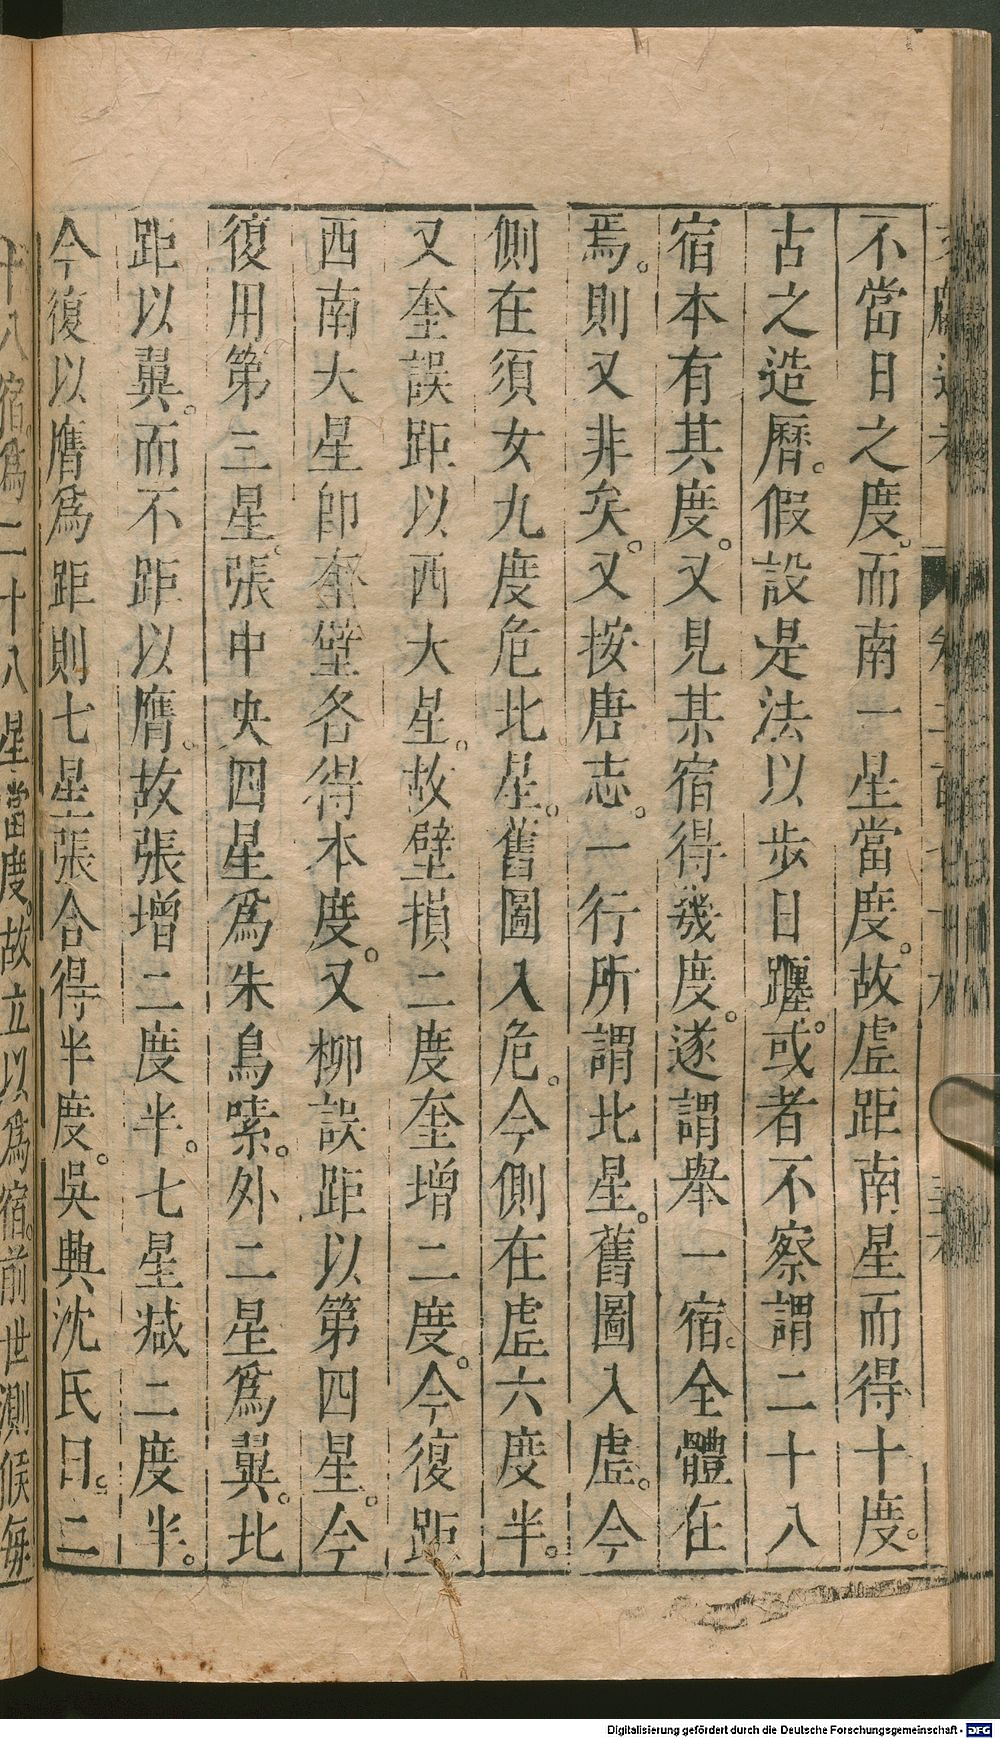 不當日之度。而南一星當度。故虛距南星而得十度。
古之造曆。假設是法以步日躔。或者不察。謂二十八
宿本有其度。又見某宿得幾度。遂謂舉一宿。全體在
焉。則又非矣。又按唐志。一行所謂北星。舊圖入虛。今
側在須女九度危北星。舊圖入危。今側在虛六度半。
又奎誤距以西大星。故壁損二度奎增二度。今復距
西南大星卽奎壁各得本度。又柳誤距以第四星。今
復用第三星。張中央四星爲朱鳥嗉。外二星爲翼。北
距以翼。而不距以膺。故張增二度半。七星減二度半。
今復以膺爲距則七星張合得半度。吳興沈氏曰。二
十八宿。爲二十八星當度。故立以爲宿。前世測候每
Digitalisierung gefördert durch die Deutsche Forschungsgemeinschaft - DFG